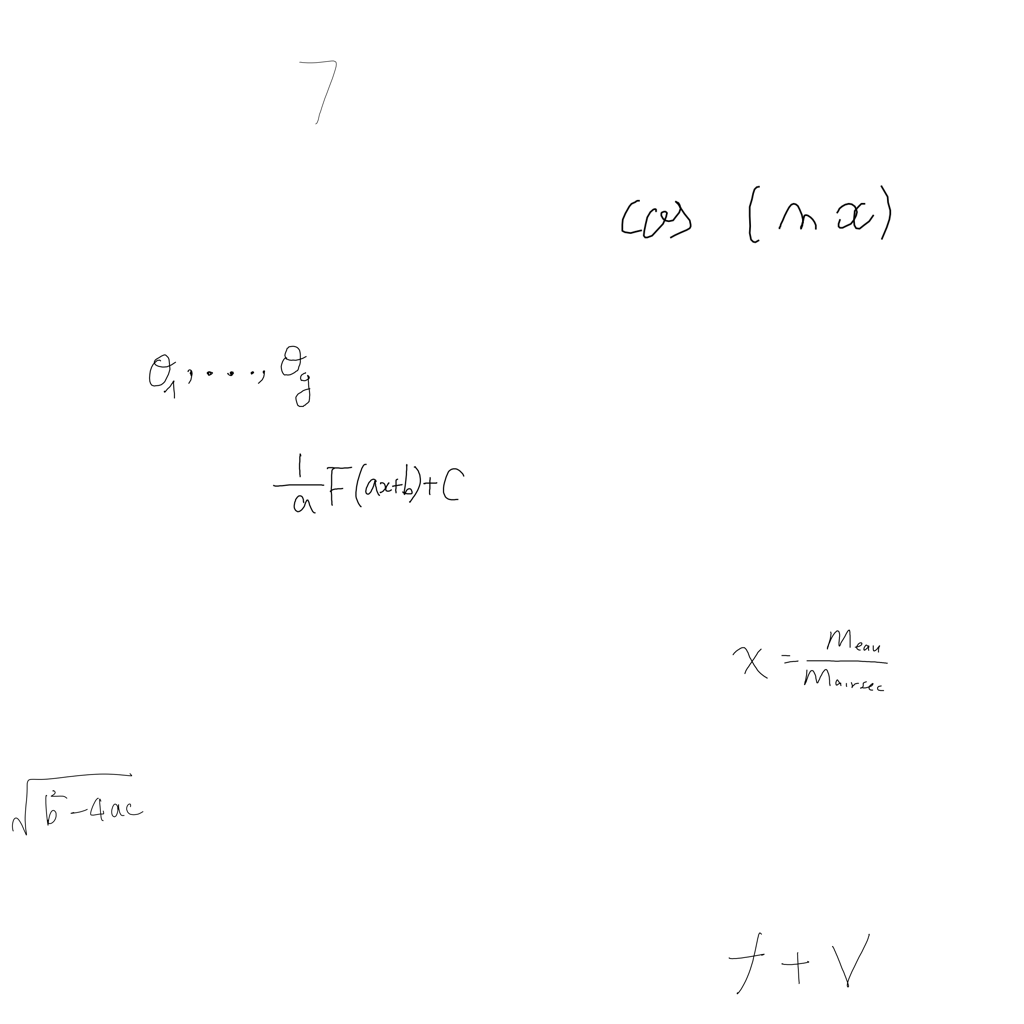 7
cos (nx)
θ₁, ..., θ_g
\frac{1}{a}F(ax+b)+C
x = \frac{m_{eau}}{m_{airsec}}
\sqrt{b^2-4ac}
f+V